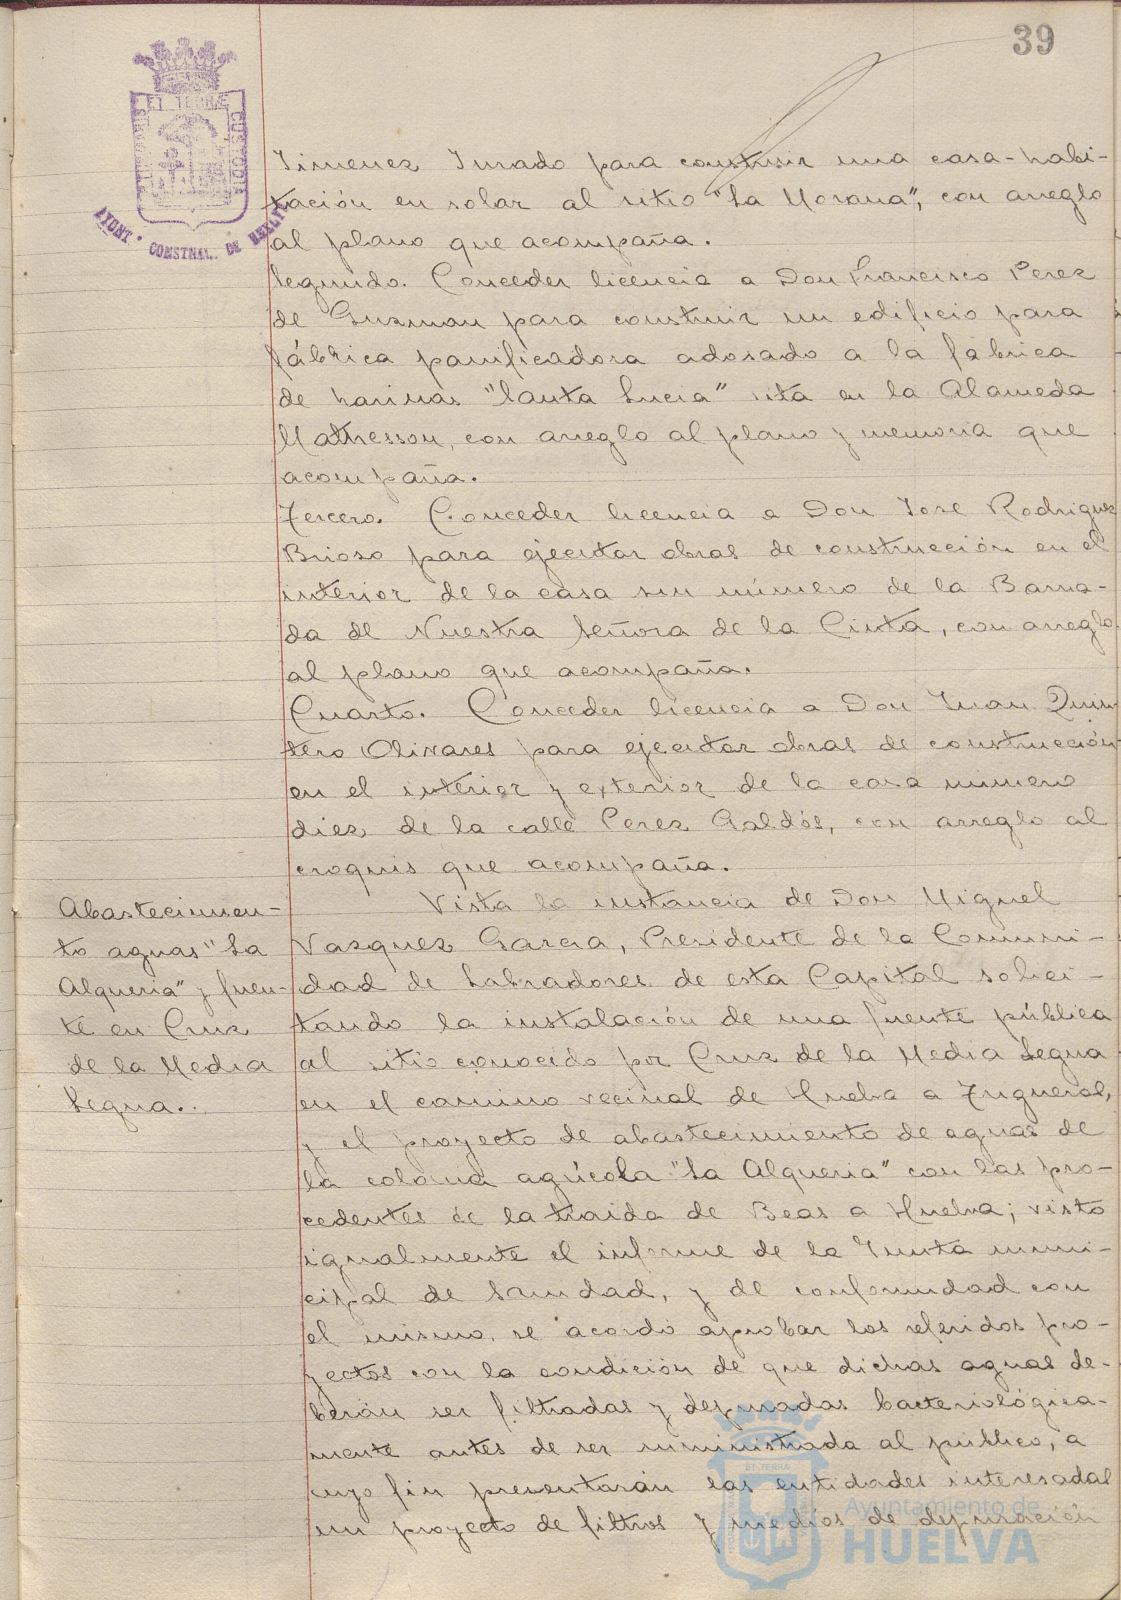 39
ET TERRÆ
CUSTODIA
AYONT • CONSTNAL. DE HUELVA
Jimenez Jurado para construir una casa-habi-
tación en solar al sitio "La Morana", con arreglo
al plano que acompaña.
Segundo. Conceder licencia a Don Francisco Perez
de Guzman para construir un edificio para
fábrica panificadora adosado a la fábrica
de harinas "Santa Lucia" sita en la Alameda
Mathesson, con arreglo al plano y memoria que
acompaña.
Tercero. Conceder licencia a Don Jose Rodriguez
Brioso para ejecutar obras de construcción en el
interior de la casa sin número de la Barria-
da de Nuestra Señora de la Cinta, con arreglo
al plano que acompaña.
Cuarto. Conceder licencia a Don Juan Quin-
tero Olivares para ejecutar obras de construcción
en el interior y exterior de la casa número
diez de la calle Perez Galdós, con arreglo al
croquis que acompaña.
Abastecimien-
to aguas "La
Alqueria" y fuen-
te en Cruz
de la Media
Legua.
Vista la instancia de Don Miguel
Vazquez Garcia, Presidente de la Comuni-
dad de Labradores de esta Capital solici-
tando la instalación de una fuente pública
al sitio conocido por Cruz de la Media Legua
en el camino vecinal de Huelva a Trigueros,
y el proyecto de abastecimiento de aguas de
la colonia agrícola "La Alqueria" con las pro-
cedentes de la traida de Beas a Huelva; visto
igualmente el informe de la Junta muni-
cipal de Sanidad, y de conformidad con
el mismo, se acordó aprobar los referidos pro-
yectos con la condición de que dichas aguas de-
berán ser filtradas y depuradas bacteriológica-
mente antes de ser suministrada al público, a
cuyo fin presentarán las entidades interesadas
un proyecto de filtros y medios de depuración
ET TERRÆ
Ayuntamiento de
HUELVA